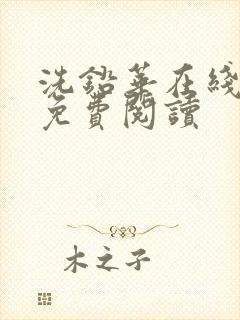 洗鉛華在綫
免費閱讀
木之子